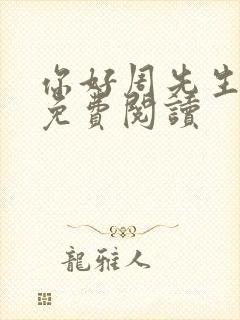 你好周先生
免費閱讀
龍雅人